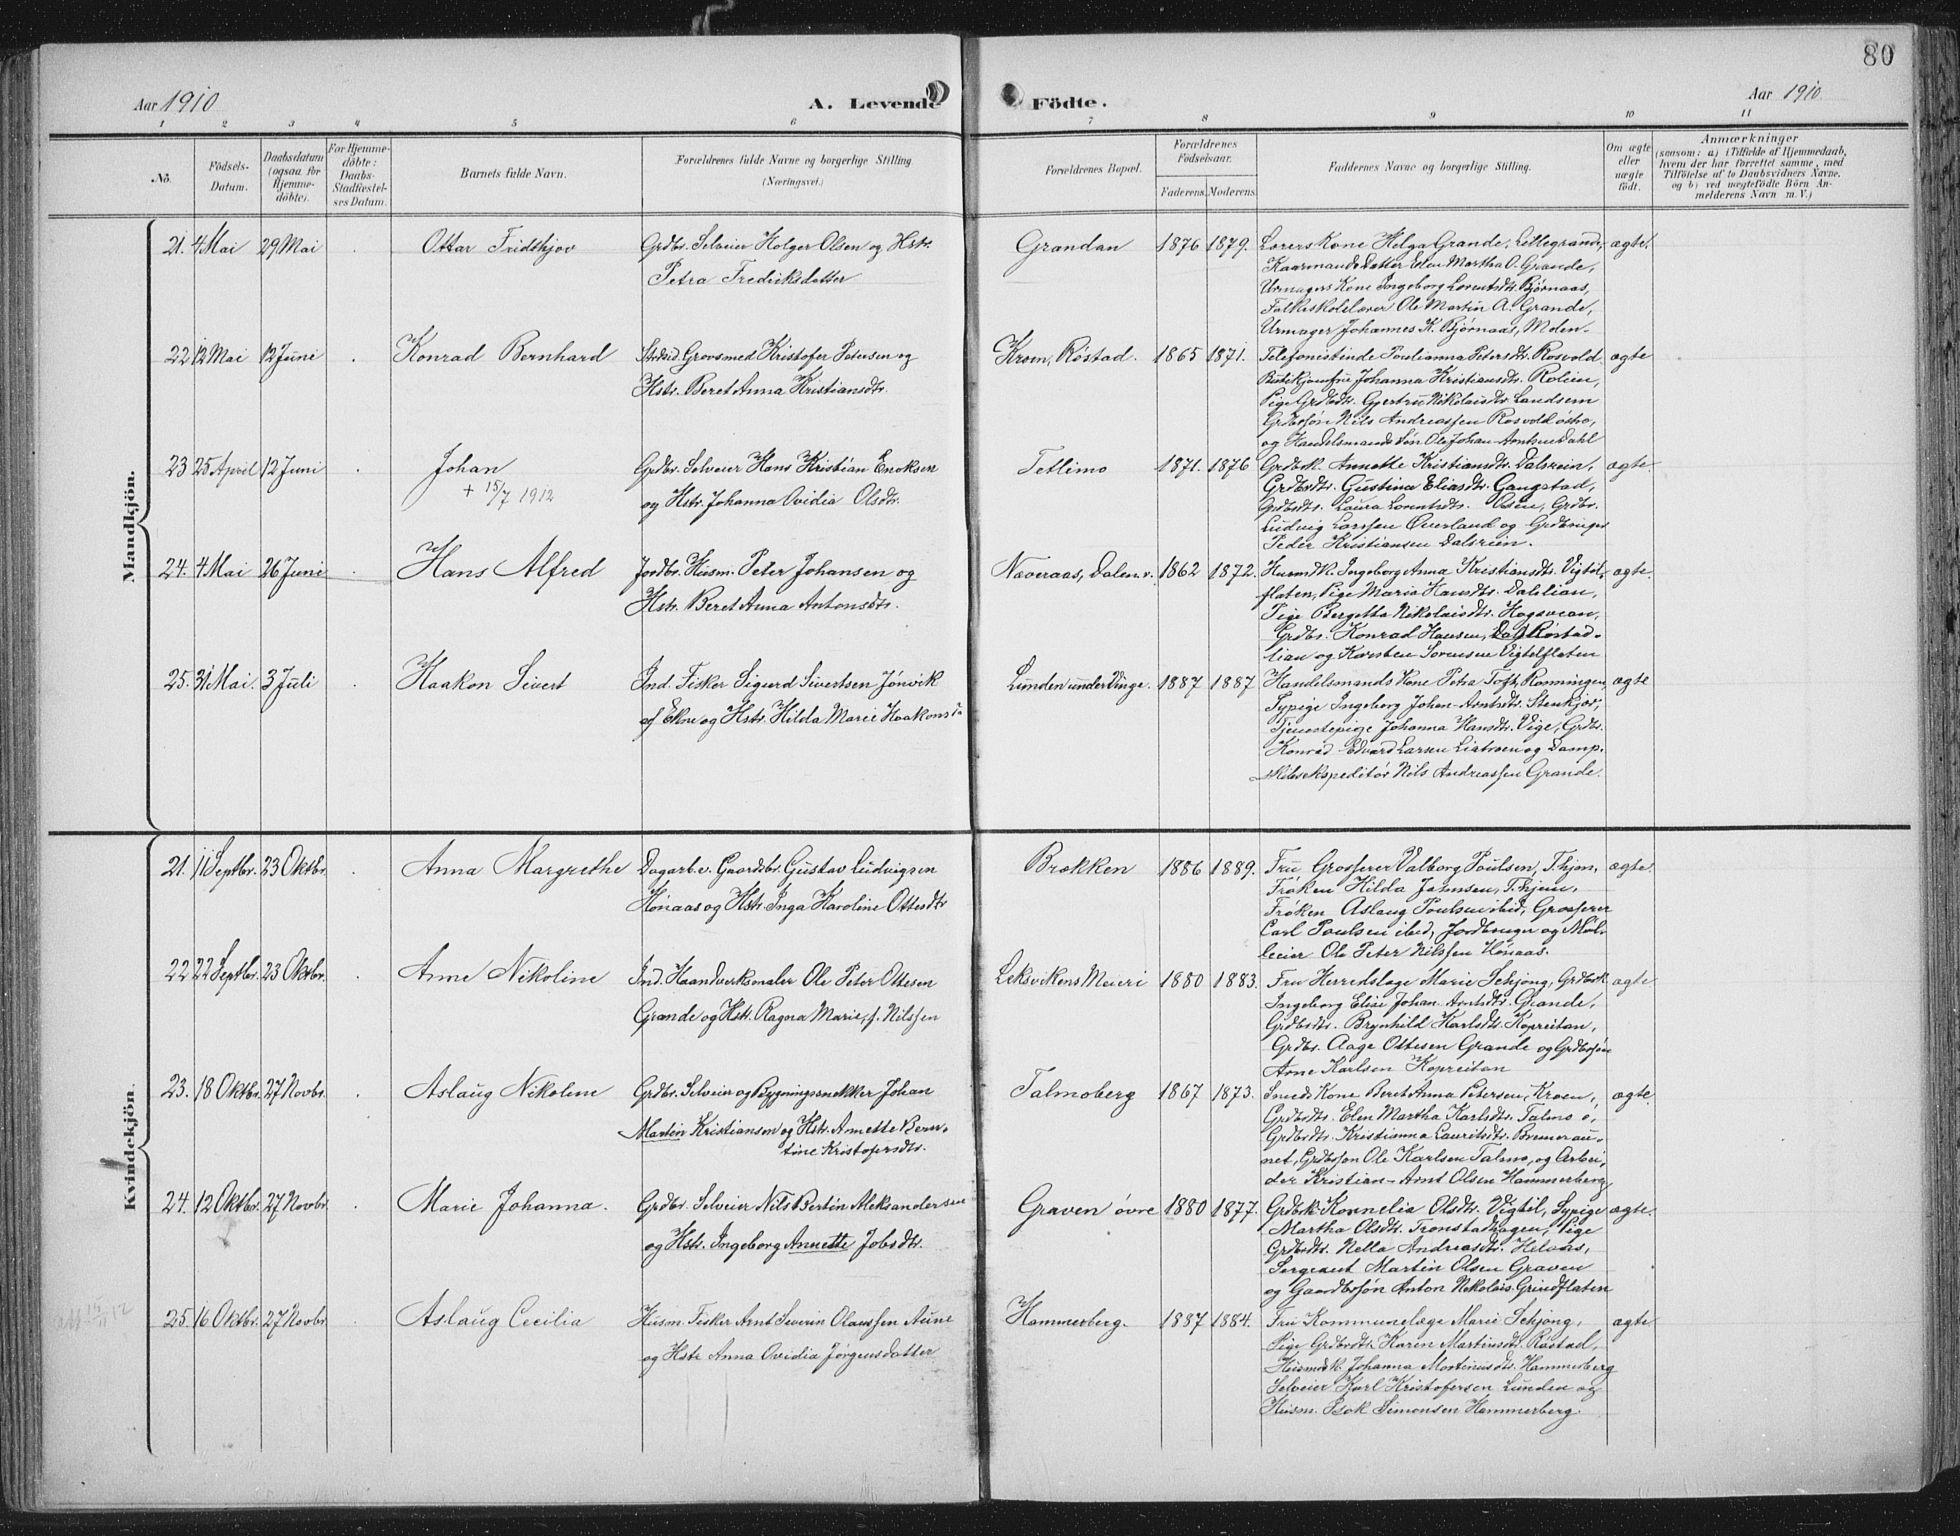 80
Aar 1910
A. Levende
Födte.
Aar 1910.
1 2 3 4 5 6 7 8 9 10 11
No.
Födsels-
Datum.
Daabsdatum
(ogsaa for
Hjemme-
döbte).
For Hjemme-
döbte:
Daabs-
Stadfæstel-
ses Datum.
Barnets fulde Navn.
Forældrenes fulde Navne og borgerlige Stilling
(Næringsvei.)
Forældrenes Bopæl.
Forældrenes
Födselsaar.
Faderens. Moderens.
Faddernes Navne og borgerlige Stilling.
Om ægte
eller
uægte
födt.
Anmærkninger
(saasom: a) i Tilfælde af Hjemmedaab,
hvem der har forrettet samme, med
Tilföielse af to Daabsvidners Navne,
og b) ved uægtefödte Börn An-
melderens Navn m. V.)
Mandkjön.
21. 4 Mai 29 Mai Ottar Fridthjov
Grdbr. Selveier Holger Olsen og Hstr.
Petra Fredriksdatter
Grandan 1876 1879.
Lærers Kone Helga Grande, Lillegrande,
Kaarmands Datter Elen Martha O. Grande,
Urmagers Kone Ingeborg Lorentsdtr. Bjørnaas,
Folkeskolelærer Ole Martin A. Grande,
Urmager Johannes K. Bjørnaas, Molden-
ægte.
22 12 Mai 12 Juni Konrad Bernhard
Grovsmed Kristofer Petersen og
Hstr. Beret Anna Kristiansdtr.
Kroen, Røstad. 1865 1871.
Telefonistinde Poulianna Petersdtr. Rosvold
Johanna Kristiansdtr. Rolien,
Pige Grdbrdtr. Gjertru Nikolausdtr. Landsem
Grdbrsøn Nils Andreassen Rosvold østre,
og Handelsmands Søn Ole Johan Arnthsen Dahl
ægte
23 25 April 12 Juni Johan
+ 15/7 1912
Grdbr. Selveier Hans Kristian Enoksen
og Hstr. Johanna Ovidia Olsdtr.
Tetlimo 1871. 1876
Grdbrk. Annette Kristiansdtr. Dalsrein,
Grdbrdtr. Gustina Eliasdtr. Gangstad,
Grdbrdtr. Laura Lorentsdtr. Olsen, Grdbr.
Ludvig Larssen Overland og Grdbruger
Peder Kristiansen Dalsrein.
ægte.
24. 4 Mai 26 Juni Hans Alfred
Jordbr. Husm. Peter Johansen og
Hstr. Beret Anna Antonsdtr.
Næveraas, Dalen v. 1862 1872.
Husmdk. Ingeborg Anna Kristiansdtr. Vigtil-
flaten, Pige Maria Hansdtr. Dalelian,
Pige Bergetta Nikolaisdtr. Hagsveian,
Grdbr. Konrad Hansen, Røstad-
lian og Karsten Sorensen Vigtelflaten
ægte.
25. 31 Mai. 3 Juli Haakon Sivert
Ind. Fisker Sigurd Sivertsen Jønvik
af Ekne og Hstr. Hilda Marie Haakonsd
Lunden under Vinge. 1887 1887
Handelsmands Kone Petra Toft, Ronningen,
Sypige Ingeborg Johan-Arntsdtr. Stenkjær,
Tjenestepige Johanna Hansdtr. Vige, Grdbr.
Konrad Edvard Larsen Liatroen og Damp-
skibsekspeditör Nils Andreassen Grande.
ægte
Kvindekjön.
21. 11 Septbr. 23 Oktbr. Anna Margrethe
Dagarb. v. Gaardsbr. Gustav Ludvigsen
Hønaas og Hstr. Inga Karoline Ottesdtr
Brækken 1886 1889.
Fru Grosserer Valborg Poulsen, Thjem,
Frøken Hilda Jahnsen, Thjem,
Frøken Aslaug Poulsen ibid, Grosserer
Carl Poulsen ibid, Jordbruger og Møl-
leier Ole Peter Nilssen Hønaas.
ægte.
22 22 Septbr. 23 Oktbr. Anne Nikoline
Ind. Haandverksmaler Ole Peter Ottesen
Grande og Hstr. Ragna Marie, f. Nilssen
Leksvikens Meieri 1880 1883.
Fru Herredslæge Marie Schjøng, Grdbrk
Ingeborg Elise Johan Arntsdtr. Grande,
Grdbrdtr. Brynhild Karlsdtr. Kopreitan,
Grdbr. Aage Ottesen Grande og Grdbrsön
Arne Karlsen Kopreitan
ægte
23. 18 Oktbr. 27 Novbr. Aslaug Nikoline
Grdbr. Selveier og Bygningssnekker Johan
Martin Kristiansen og Hstr. Annette Bern-
tine Kristofersdtr.
Talmoberg 1867 1873.
Smeds Kone Beret Anna Petersen, Kroen,
Grdbrdtr. Elen Martha Karlsdtr. Talmo ö,
Grdbrdtr. Kristianna Lauritsdtr. Bremerau-
net, Grdbrson Ole Karlsen Talmo, og Arbei-
der Kristian-Arnt Olsen Hammerberg
ægte.
24. 12 Oktbr. 27 Novbr. Marie Johanna.
Grdbr. Selveier Nils Bertin Aleksandersen
og Hstr. Ingeborg Annette Jobsdtr.
Graven övre 1880 1877.
Grdbrk. Kornelia Olsdtr. Vigtil, Sypige
Martha Olsdtr. Tronstadhagen, Pige
Grdbrdtr. Nella Andreasdtr. Helaas,
Sergeant Martin Olsen Graven
og Gaardbrsön Anton Nikolais. Grindflaten
ægte.
25. 16 Oktbr. 27 Novbr. Aslaug Cecilia
Husm. Fisker Arnt Severin Olaussen Aune
og Hstr Anna Ovidia Jørgensdatter
Hammerberg. 1887 1884.
Fru Kommunelæge Marie Schjöng,
Pige Grdbrdtr. Karen Martinusdtr. Røstad,
Husmdk. Johanna Mortinusdtr. Hammerberg
Selveier Karl Kristofersen Lunden og
Husm. Isak Simonsen Hammerberg.
ægte